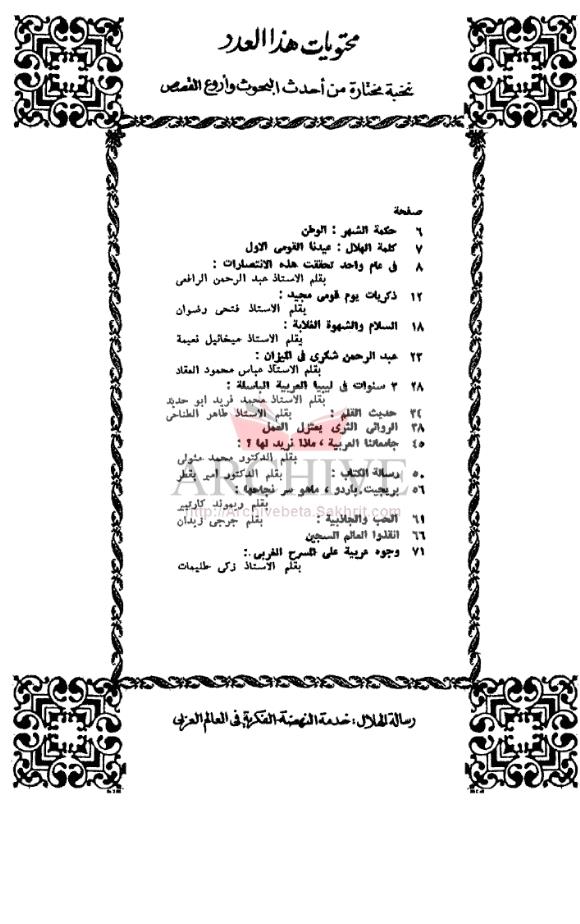 محتويات هذا العدد
نخبة مختارة من أحدث البحوث وأروع القصص
صفحة
٦ حكمة الشهر : الوطن
٧ كلمة الهلال : عيدنا القومى الاول
٨ فى عام واحد تحققت هذه الانتصارات :
بقلم الاستاذ عبد الرحمن الرافعى
١٢ ذكريات يوم قومى مجيد :
بقلم الاستاذ فتحى رضوان
١٨ السلام والشهوة الغلابة :
بقلم الاستاذ ميخائيل نعيمة
٢٣ عبد الرحمن شكرى فى الميزان :
بقلم الاستاذ عباس محمود العقاد
٢٨ ٣ سنوات فى ليبيا العربية الباسلة :
بقلم الاستاذ محمد فريد ابو حديد
٣٤ حديث القلم : بقلم الاستاذ طاهر الطناحى
٣٨ الروائى الثرى يعتزل العمل
٤٥ جامعاتنا العربية ، ماذا نريد لها ؟ :
بقلم الدكتور محمد متولى
٥٠ رسالة الكتاب : بقلم الدكتور أمير بقطر
٥٦ بريجيت باردو ، ماهو سر نجاحها :
بقلم ريموند كارتيير
٦١ الحب والجاذبية : بقلم جرجى زيدان
٦٦ انقذوا العالم السجين
٧١ وجوه عربية على المسرح الغربى :
بقلم الاستاذ زكى طليمات
ARCHIVE
http://Archivebeta.Sakhrit.com
رسالة الهلال : خدمة النهضة الفكرية فى العالم العربى